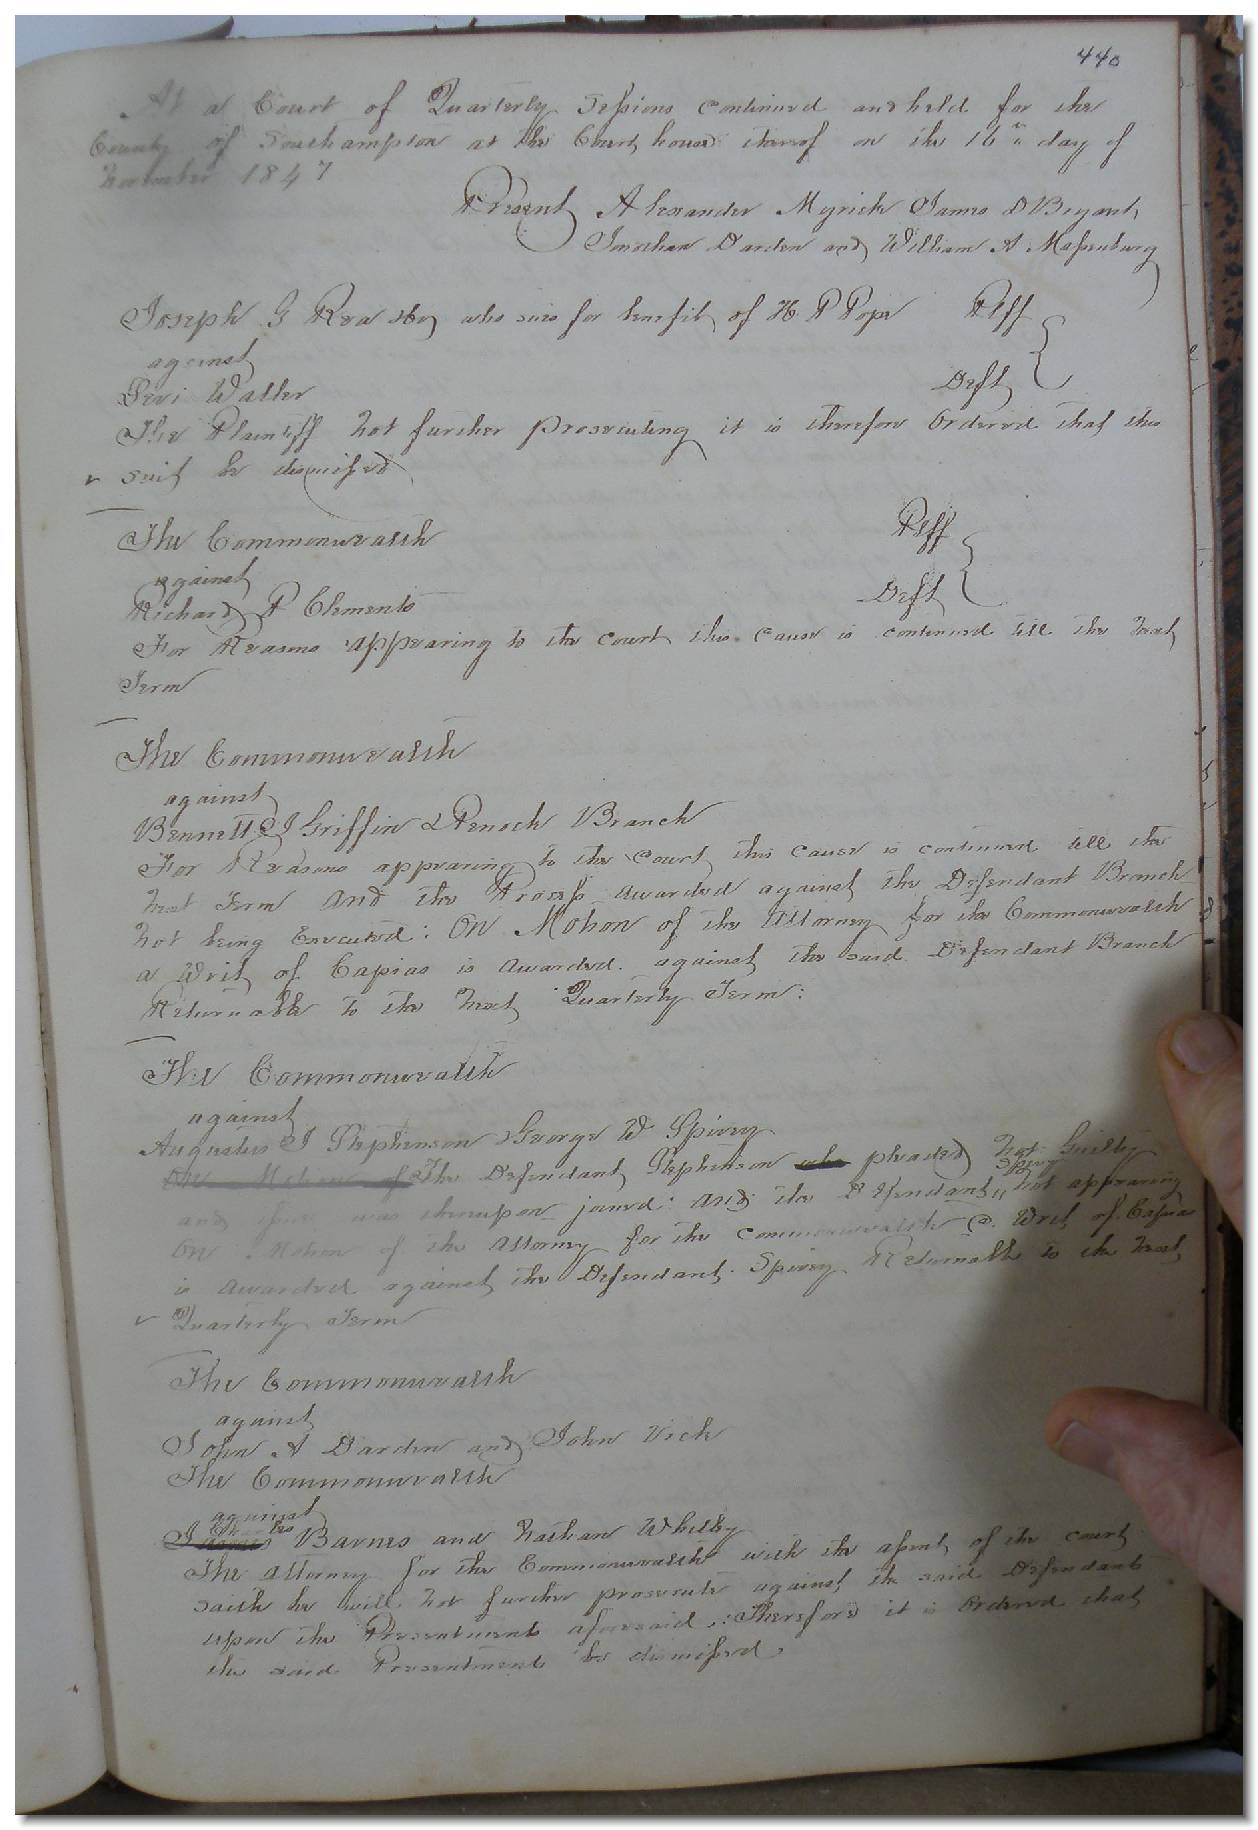 440
At a Court of Quarterly Sessions continued and held for the
County of Southampton at the Court house thereof on the 16th day of
November 1847
Present Alexander Myrick James D Bryant
Jonathan Darden and William A Massenburg
Joseph G Rea who sues for benefit of H P Pope Plff
against
Levi Waller Deft
The Plaintiff not further prosecuting it is therefore Ordered that this
suit be dismissed
The Commonwealth Plff
against
Richard P Clements Deft
For Reasons appearing to the court this cause is continued till the next
Term
The Commonwealth
against
Bennett J Griffin & Penoch Branch
For Reasons appearing to the Court this cause is continued till the
next Term and the Process awarded against the Defendant Branch
not being Executed: On Motion of the Attorney for the Commonwealth
a Writ of Capias is awarded against the said Defendant Branch
Returnable to the next Quarterly Term:
The Commonwealth
against
Augustus J Stephenson & George W Spivey
On Motion of The Defendant Stephenson who pleaded not Guilty
Spivey
and issue was thereupon joined: and the Defendant not appearing
On Motion of the Attorney for the Commonwealth a Writ of Capias
is awarded against the Defendant Spivey Returnable to the next
Quarterly Term
The Commonwealth
against
John A Darden and John Vick
The Commonwealth
against
Charles
James Barnes and Nathan Whitby
The Attorney for the Commonwealth with the assent of the court
saith he will not further prosecute against the said Defendants
upon the Presentments aforesaid: Therefore it is Ordered that
the said Presentments be dismissed